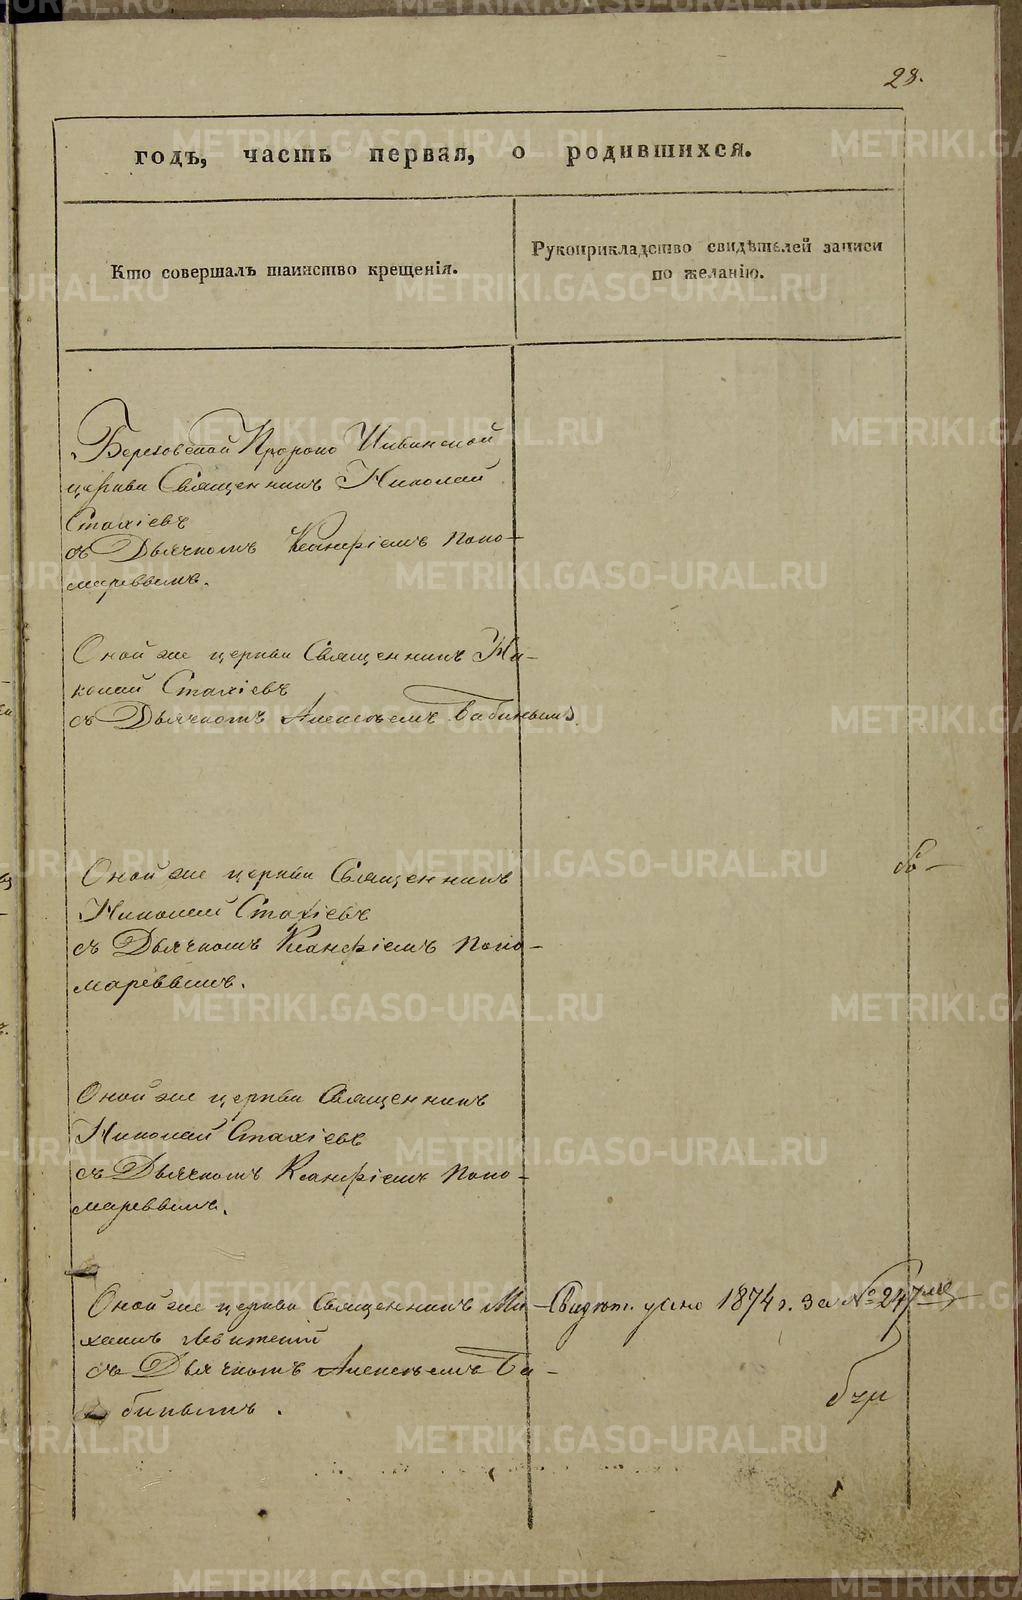 28.
годъ, часть первая, о родившихся.
Кто совершалъ таинство крещенія.
Рукоприкладство свидѣтелей записи
по желанію.
Березовской Пророко Ильинской
церкви Священникъ Николай
Стахіевъ
съ Дьячкомъ Ксанфіемъ Поно-
маревымъ.
Оной же церкви Священникъ Ни-
колай Стахіевъ
съ Дьячкомъ Алексѣемъ Бабинымъ.
Оной же церкви Священникъ
Николай Стахіевъ
съ Дьячкомъ Ксанфіемъ Поно-
маревымъ.
Оной же церкви Священникъ
Николай Стахіевъ
съ Дьячкомъ Ксанфіемъ Поно-
маревымъ.
Оной же церкви Священникъ Ми-
хаилъ
съ Дьячкомъ Алексѣемъ Ба-
бинымъ.
1874 г. за № 247
METRIKI.GASO-URAL.RU